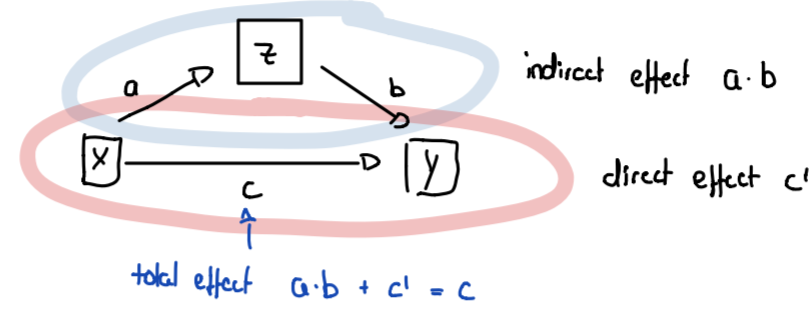 z
a
b
indirect effect a·b
x
y
c
direct effect c'
total effect a·b + c' = c